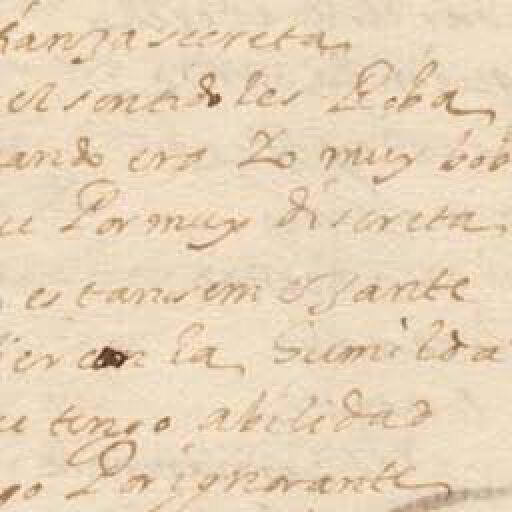 hanza secreta
el sentido les Roba
ando ero yo muy bob
ue Por muy discreta
es tan semejante
ieron la humilda
ue tengo abilidad
go Por ignorante